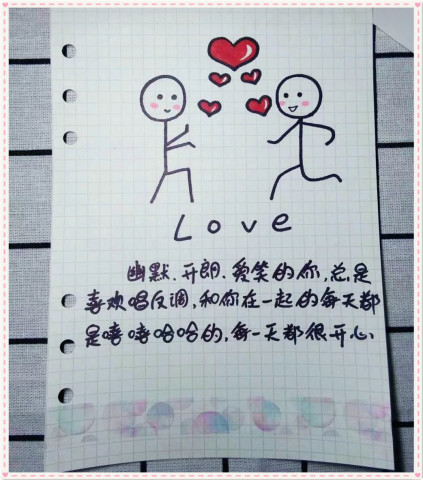 Love
幽默、开朗、爱笑的你,总是
喜欢唱反调,和你在一起的每天都
是嘻嘻哈哈的,每一天都很开心